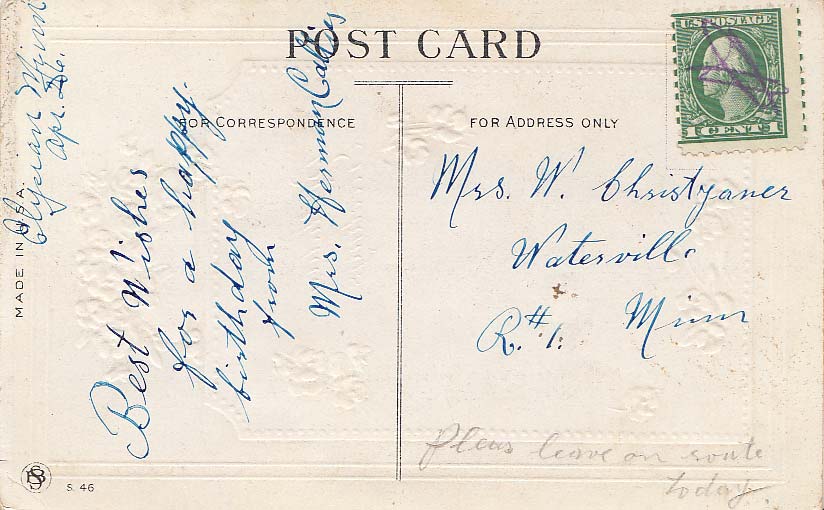 POST CARD
U.S. POSTAGE
1 CENT 1
FOR CORRESPONDENCE
FOR ADDRESS ONLY
MADE IN U.S.A.
Elysian Minn
Apr. 26.
Best Wishes
for a happy
birthday
from
Mrs. Herman
Mrs. W. Christyaner
Waterville
R.#1. Minn
Pleas leave on route
today.
S. 46